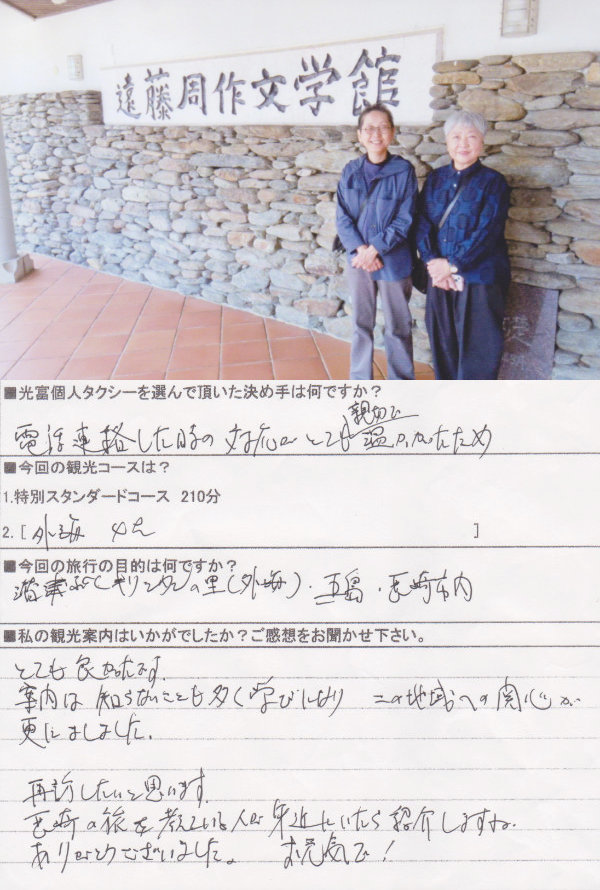 遠藤周作文学館
■光富個人タクシーを選んで頂いた決め手は何ですか?
親切で
電話連絡した時の対応がとても温かかったため
■今回の観光コースは?
1.特別スタンダードコース 210分
2.[ 外海 ]
■今回の旅行の目的は何ですか?
キリシタンの里(外海)・五島・長崎市内
■私の観光案内はいかがでしたか?ご感想をお聞かせ下さい。
とても良かったです。
案内は知らないことも多く学びになり この地域への関心が
更にましました。
再訪したいと思います。
長崎の旅を考えている人が身近にいたら紹介しますね。
ありがとうございました。 お元気で!